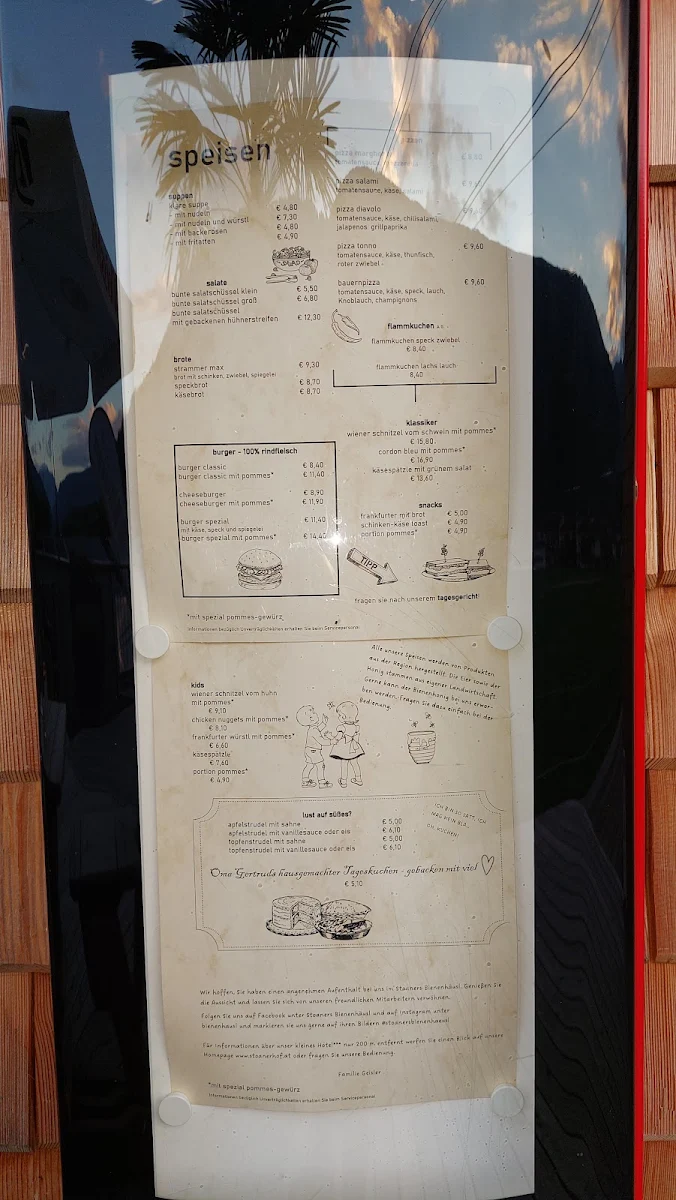 speisen
suppen
klare suppe
- mit nudeln € 4,80
- mit nudeln und würstl € 7,30
- mit backerbsen € 4,80
- mit fritatten € 4,90
salate
bunte salatschüssel klein € 5,50
bunte salatschüssel groß € 6,80
bunte salatschüssel
mit gebackenen hühnerstreifen € 12,30
brote
strammer max € 9,30
brot mit schinken, zwiebel, spiegelei
speckbrot € 8,70
käsebrot € 8,70
burger - 100% rindfleisch
burger classic € 8,40
burger classic mit pommes* € 11,40
cheeseburger € 8,90
cheeseburger mit pommes* € 11,90
burger spezial € 11,40
mit käse, speck und spiegelei
burger spezial mit pommes* € 14,40
*mit spezial pommes-gewürz
Informationen bezüglich Unverträglichkeiten erhalten Sie beim Servicepersonal
pizzen
pizza margherita
tomatensauce
pizza salami
tomatensauce, käse, salami
pizza diavolo
tomatensauce, käse, chilisalami,
jalapenos, grillpaprika
pizza tonno € 9,60
tomatensauce, käse, thunfisch,
roter zwiebel
bauernpizza € 9,60
tomatensauce, käse, speck, lauch,
Knoblauch, champignons
flammkuchen
flammkuchen speck zwiebel
€ 8,40
flammkuchen lachs lauch
8,40
klassiker
wiener schnitzel vom schwein mit pommes*
€ 15,80
cordon bleu mit pommes*
€ 16,90
käsespätzle mit grünem salat
€ 13,60
snacks
frankfurter mit brot € 5,00
schinken-käse toast € 4,90
portion pommes* € 4,90
TIPP
fragen sie nach unserem tagesgericht!
Alle unsere Speisen werden von Produkten
aus der Region hergestellt. Die Eier sowie der
Honig stammen aus eigener Landwirtschaft.
Gerne kann der Bienenhonig bei uns erwor-
ben werden. Fragen Sie dazu einfach bei der
Bedienung.
kids
wiener schnitzel vom huhn
mit pommes*
€ 9,10
chicken nuggets mit pommes*
€ 8,10
frankfurter würstl mit pommes*
€ 6,60
käsespätzle
€ 7,60
portion pommes*
€ 4,90
lust auf süßes?
apfelstrudel mit sahne € 5,00
apfelstrudel mit vanillesauce oder eis € 6,10
topfenstrudel mit sahne € 5,00
topfenstrudel mit vanillesauce oder eis € 6,10
ICH BIN SO SATT, ICH
MAG KEIN BLA...
OH, KUCHEN!
Oma Gertruds hausgemachter Tageskuchen - gebacken mit viel
€ 5,10
Wir hoffen, Sie haben einen angenehmen Aufenthalt bei uns in Stoaners Bienenhäusl. Genießen Sie
die Aussicht und lassen Sie sich von unseren freundlichen Mitarbeitern verwöhnen.
Folgen Sie uns auf Facebook unter Stoaners Bienenhäusl und auf instagram unter
bienenhäusl und markieren sie uns gerne auf Ihren Bildern #stoanersbienenhaeusl
Für Informationen über unser kleines Hotel*** nur 200 m entfernt werfen Sie einen Blick auf unsere
Homepage www.stoanerhof.at oder fragen Sie unsere Bedienung.
Familie Geisler
*mit spezial pommes-gewürz
Informationen bezüglich Unverträglichkeiten erhalten Sie beim Servicepersonal